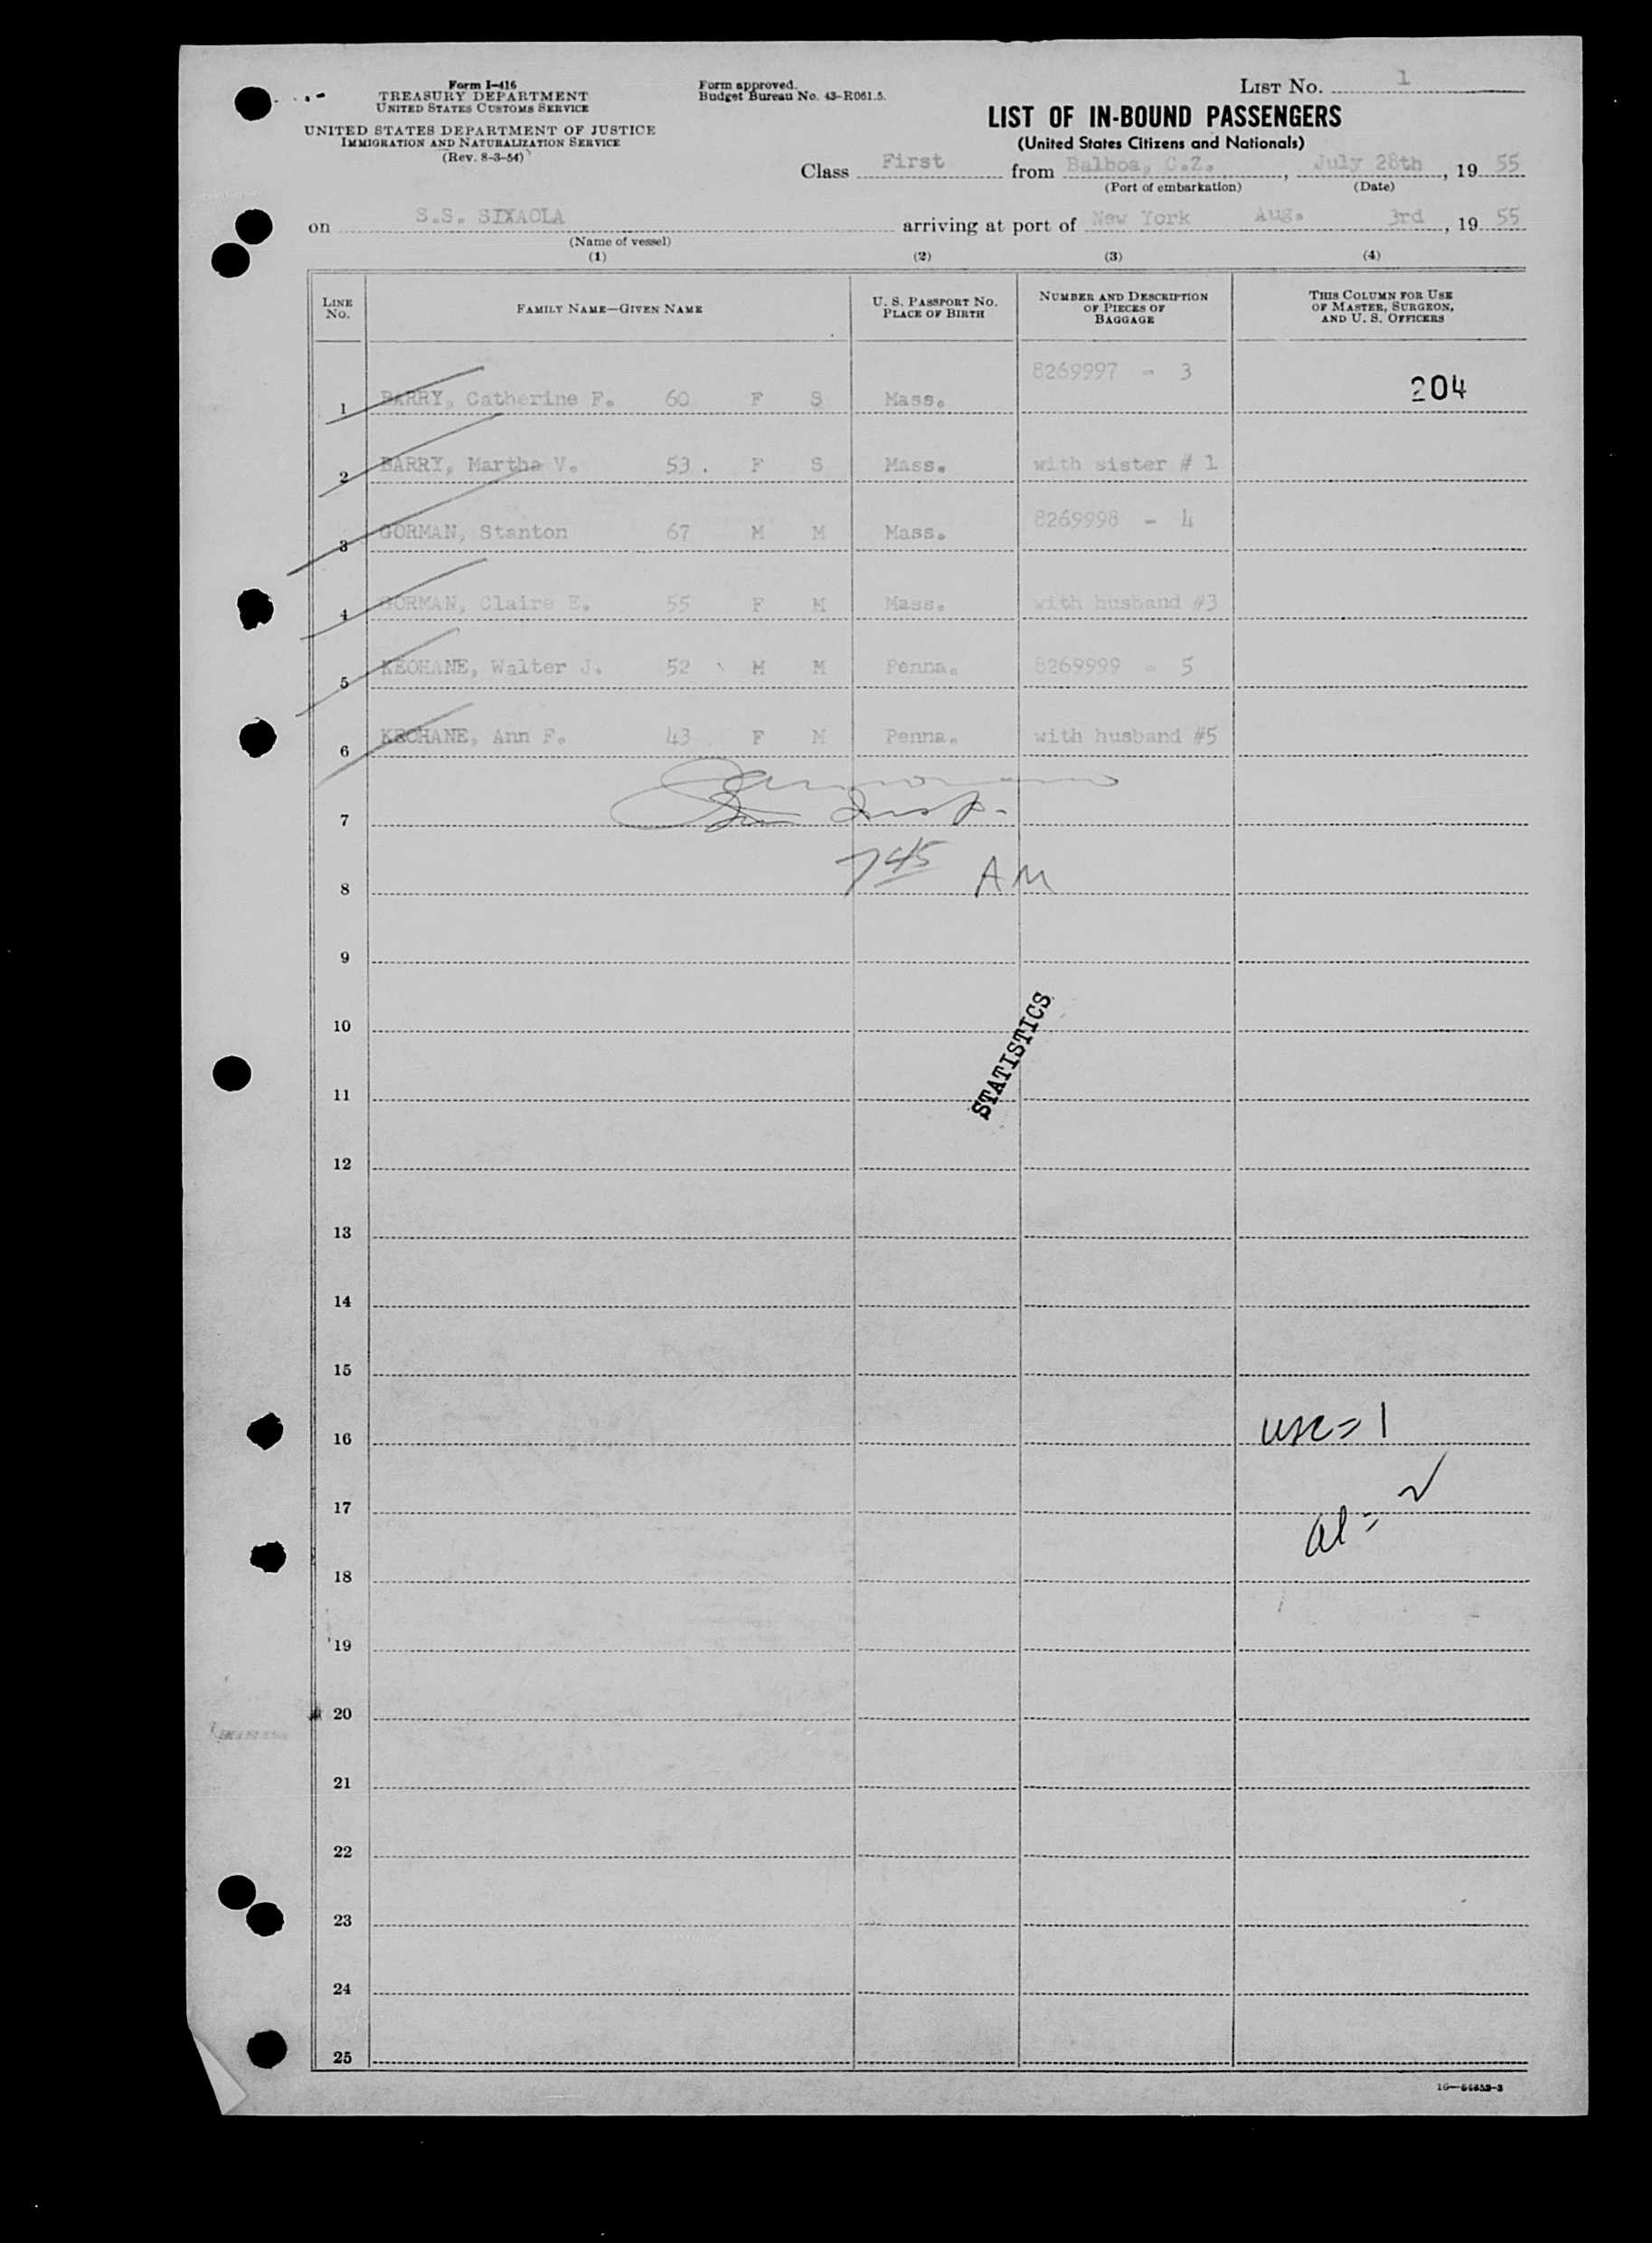 Form I-416
TREASURY DEPARTMENT
UNITED STATES CUSTOMS SERVICE
UNITED STATES DEPARTMENT OF JUSTICE
IMMIGRATION AND NATURALIZATION SERVICE
(Rev. 8-3-54)
Form approved.
Budget Bureau No. 43-R061.5.
LIST No. 1
LIST OF IN-BOUND PASSENGERS
(United States Citizens and Nationals)
Class First from Balboa, C.Z., July 28th, 19 55
(Port of embarkation) (Date)
on S.S. SIXAOLA arriving at port of New York Aug. 3rd, 19 55
(Name of vessel)
(1) (2) (3) (4)
LINE No. FAMILY NAME—GIVEN NAME U. S. PASSPORT No. PLACE OF BIRTH NUMBER AND DESCRIPTION OF PIECES OF BAGGAGE THIS COLUMN FOR USE OF MASTER, SURGEON, AND U. S. OFFICERS
1 BARRY, Catherine F. 60 F S Mass. 8269997 - 3 204
2 BARRY, Martha V. 53 . F S Mass. with sister # 1
3 GORMAN, Stanton 67 M M Mass. 8269998 - 4
4 GORMAN, Claire E. 55 F M Mass. with husband #3
5 KEOHANE, Walter J. 52 M M Penna. 8269999 - 5
6 KEOHANE, Ann F. 43 F M Penna. with husband #5
7
7 45 AM
8
9
10
STATISTICS
11
12
13
14
15
16 usc = 1
17
al = 2
18
19
20
21
22
23
24
25